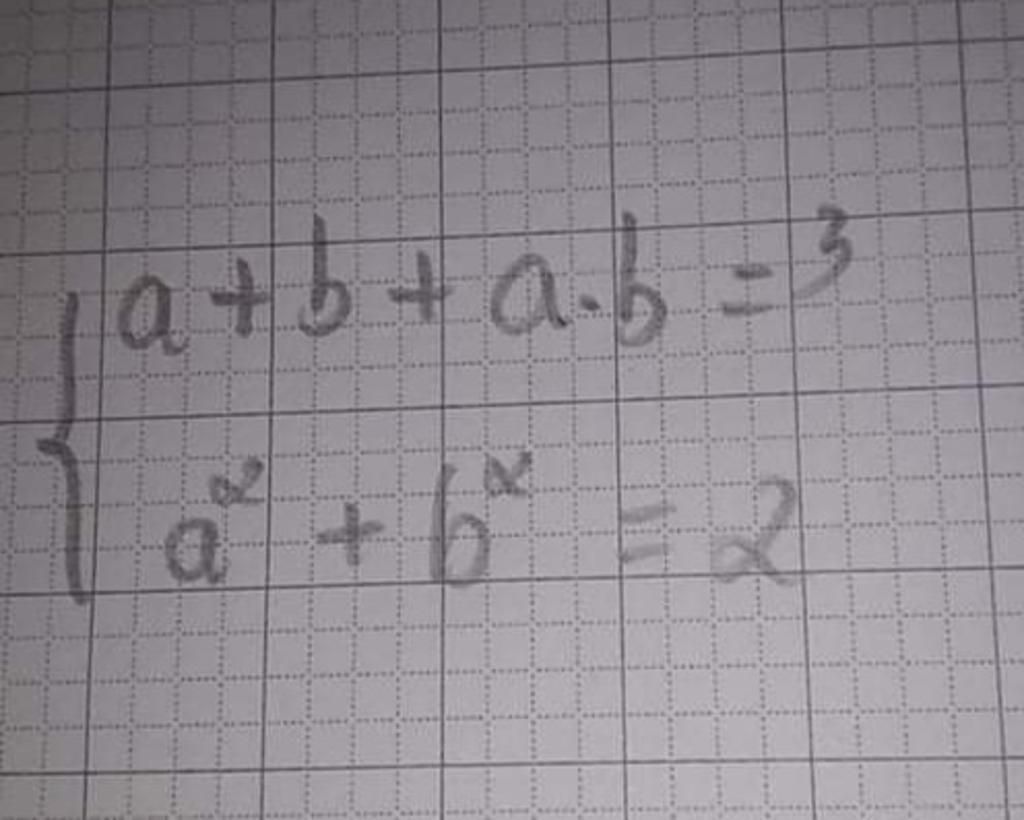 a + b + a · b = 3
a² + b² = 2